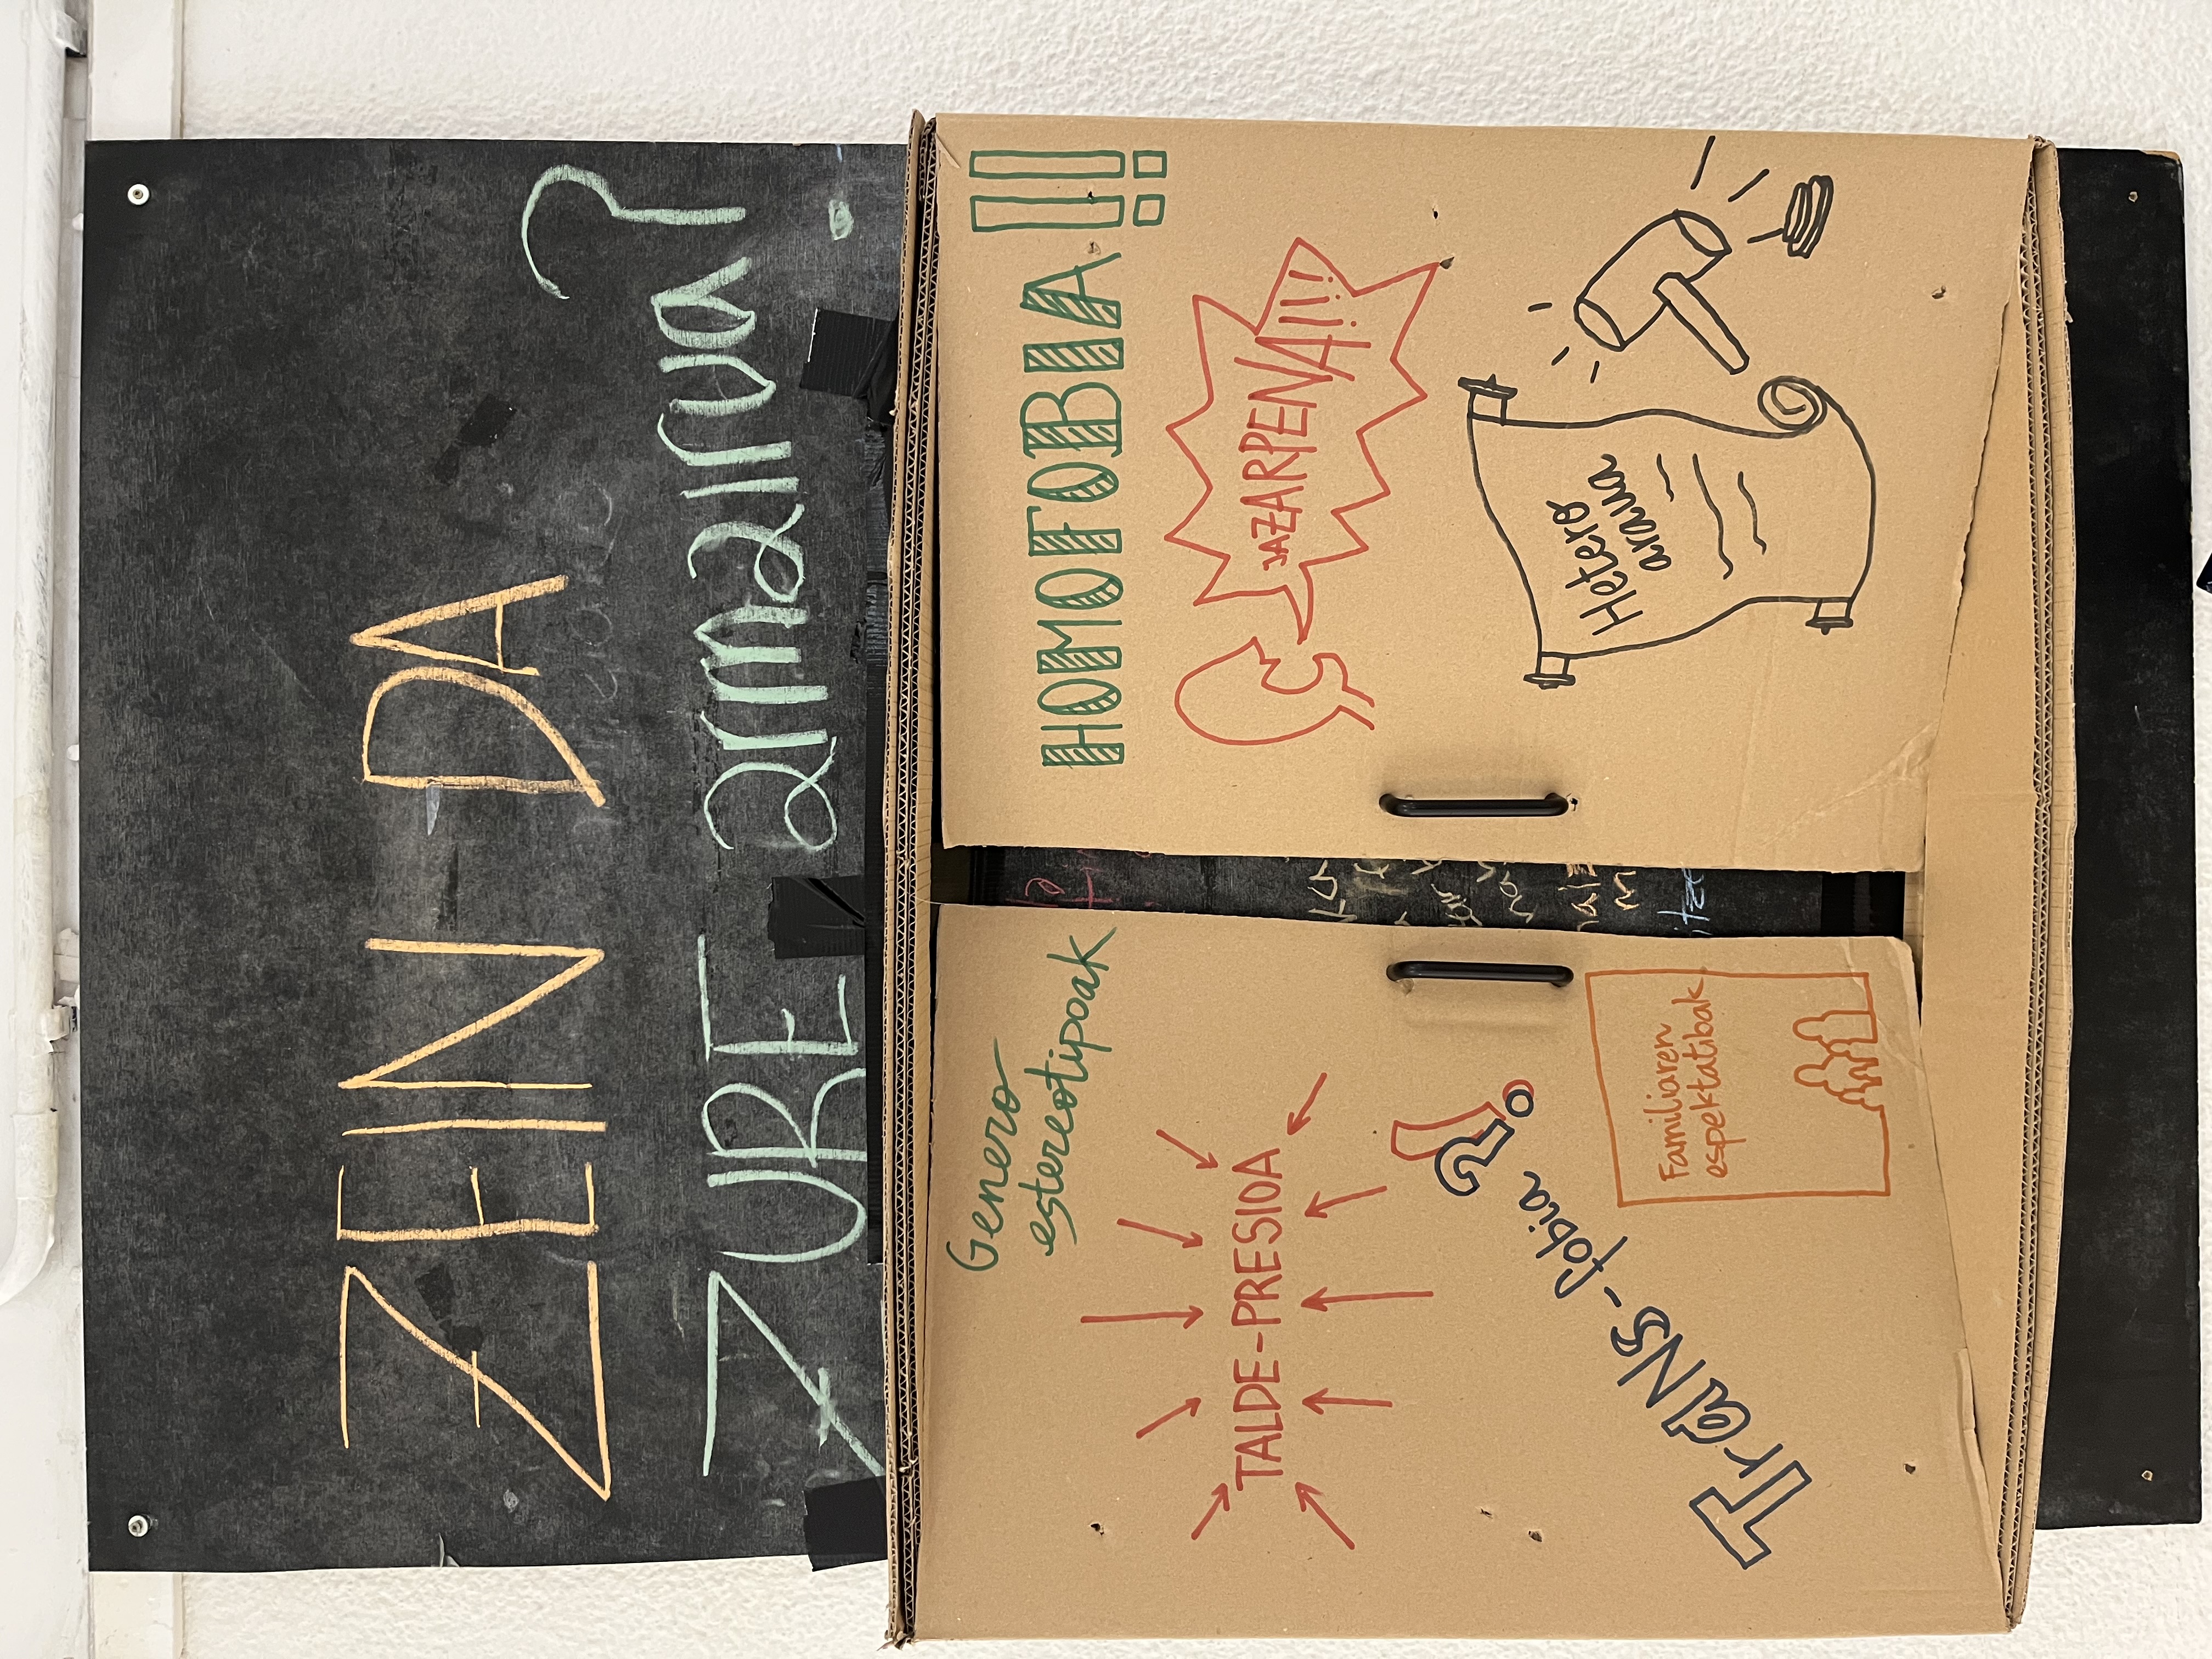 ZEIN DA
ZURE armairua?
Genero
estereotipoak
TALDE-PRESIOA
TraNS-fobia ?!
Familiaren
espektatibak
HOMOFOBIA !!
JAZARPENA!!!
Hetero
araua